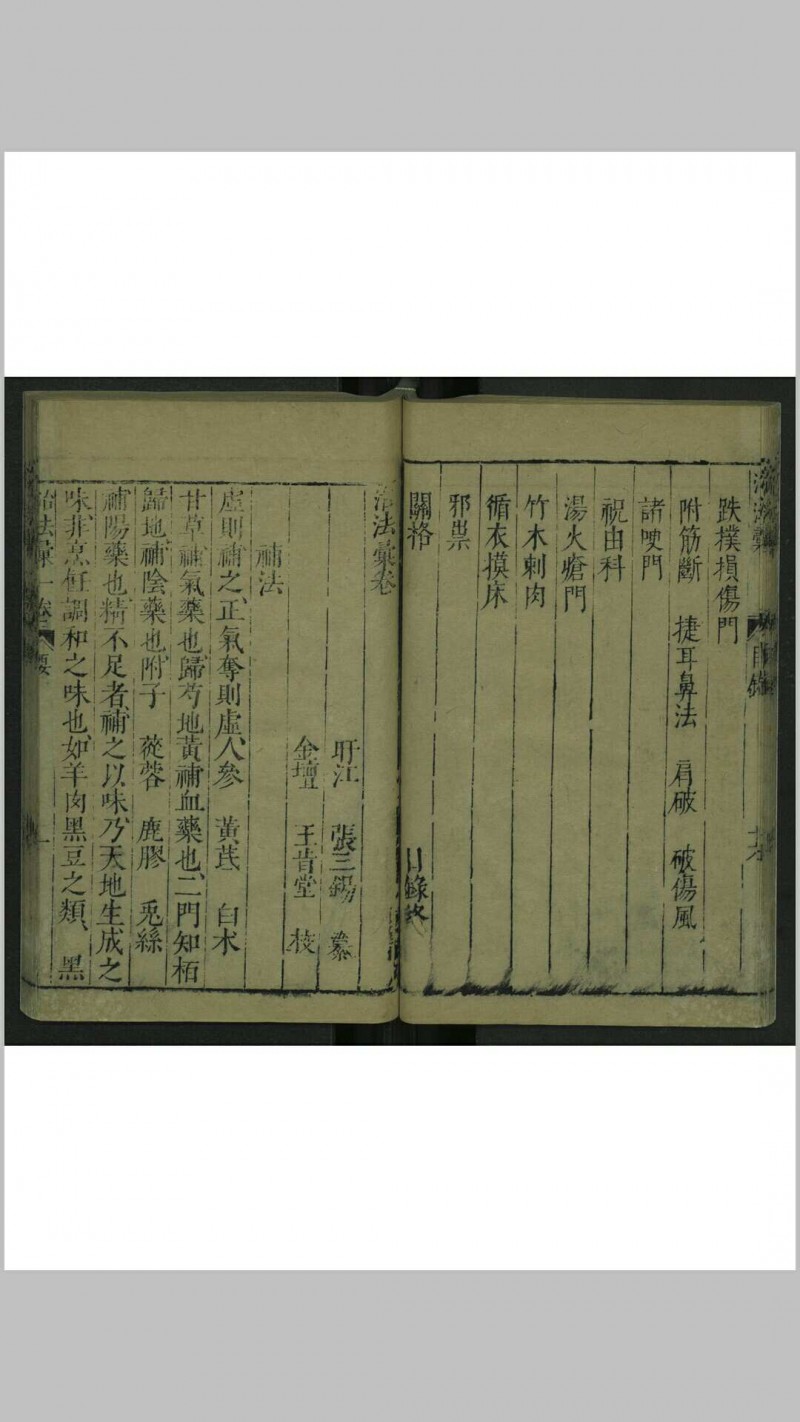 治法彙 目錄
跌撲損傷門
附筋斷 捷耳鼻法 肩破 破傷風
諸哽門
祝由科
湯火瘡門
竹木刺肉
循衣摸床
邪祟
關格 目錄終
治法彙卷
盱江 張三錫 纂
金壇 王肯堂 校
補法
虛則補之、正氣奪則虛、人參 黃芪 白朮
甘草補氣藥也、歸芍地黃補血藥也、二門知栢
歸地、補陰藥也、附子 蓯蓉 鹿膠 兎絲
補陽藥也、精不足者、補之以味、乃天地生成之
味、非烹飪調和之味也、如羊肉黑豆之類、黑
治法彙一卷 要 一